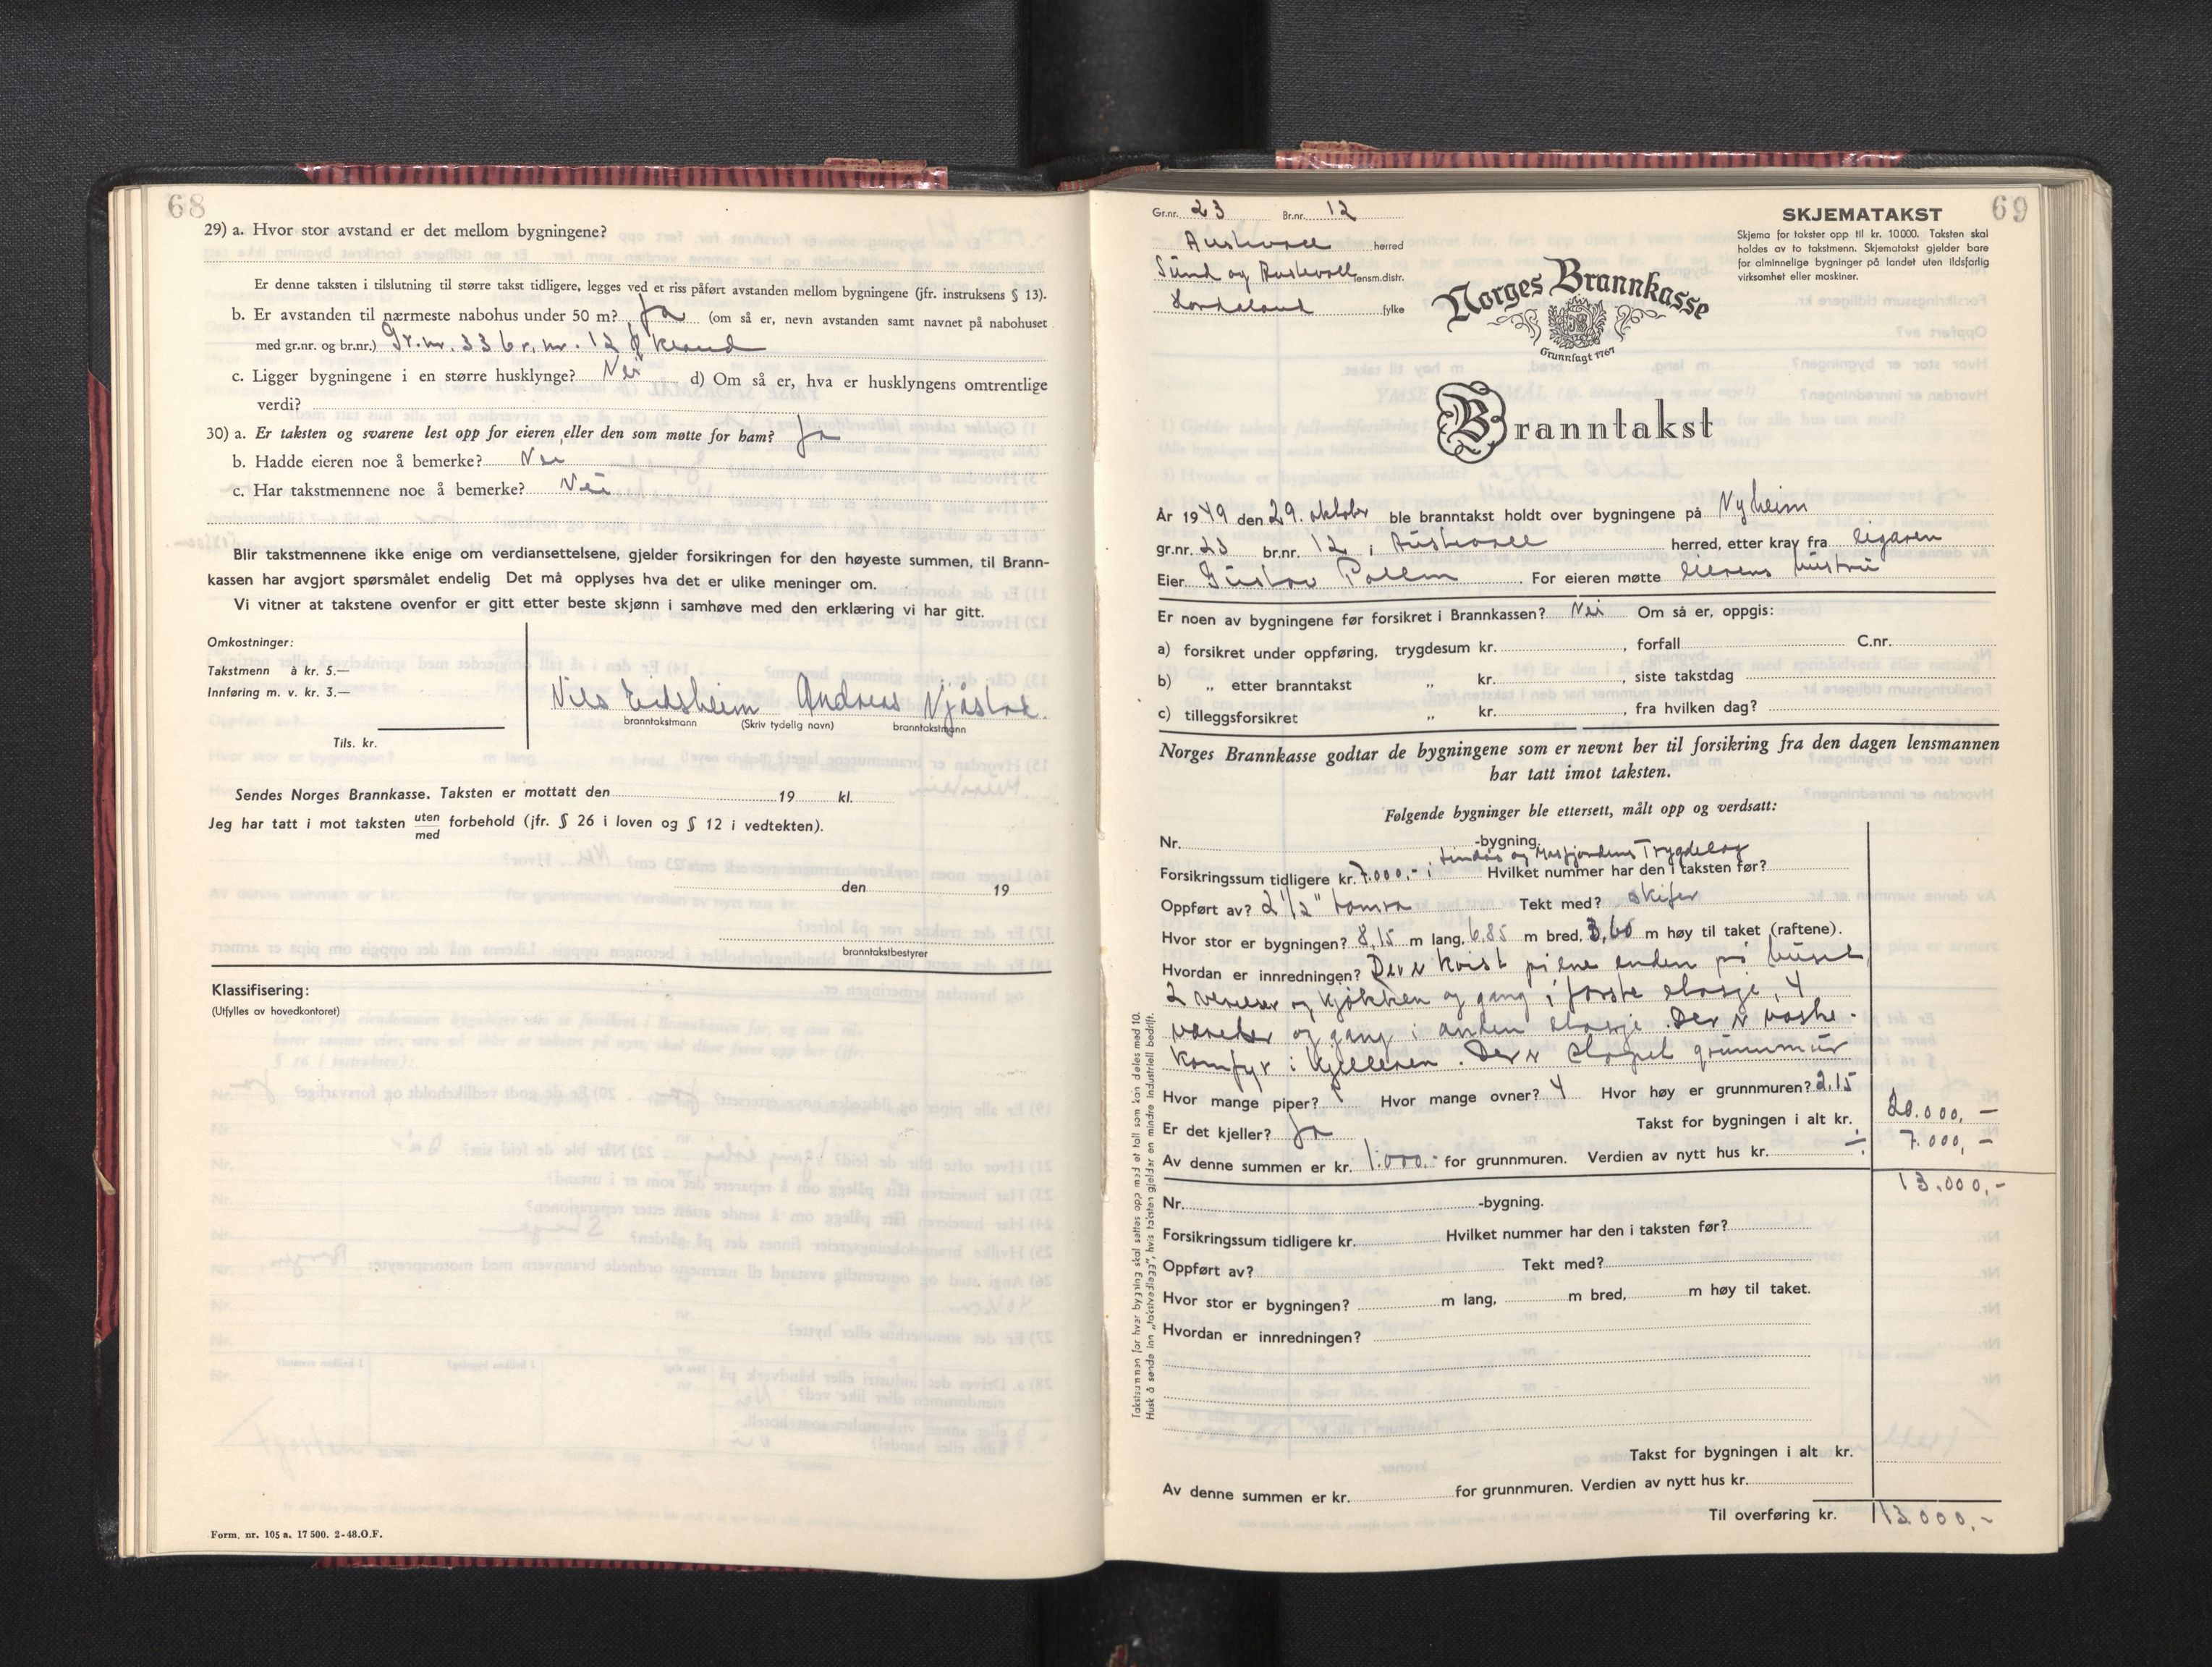 68
29) a. Hvor stor avstand er det mellom bygningene?
Er denne taksten i tilslutning til større takst tidligere, legges ved et riss påført avstanden mellom bygningene (jfr. instruksens § 13).
b. Er avstanden til nærmeste nabohus under 50 m? Ja (om så er, nevn avstanden samt navnet på nabohuset
med gr.nr. og br.nr.) Gr.nr. 33 br.nr. 12
c. Ligger bygningene i en større husklynge? Nei d) Om så er, hva er husklyngens omtrentlige
verdi?
30) a. Er taksten og svarene lest opp for eieren eller den som møtte for ham? Ja
b. Hadde eieren noe å bemerke? Nei
c. Har takstmennene noe å bemerke? Nei
Blir takstmennene ikke enige om verdiansettelsene, gjelder forsikringen for den høyeste summen, til Brann-
kassen har avgjort spørsmålet endelig Det må opplyses hva det er ulike meninger om.
Vi vitner at takstene ovenfor er gitt etter beste skjønn i samhøve med den erklæring vi har gitt.
Omkostninger:
Takstmenn à kr. 5.—
Innføring m. v. kr. 3.—
Tils. kr.
Nils Eidsheim Andreas Njåstad.
branntakstmann (Skriv tydelig navn) branntakstmann
Sendes Norges Brannkasse. Taksten er mottatt den 19 kl.
Jeg har tatt i mot taksten uten
med
forbehold (jfr. § 26 i loven og § 12 i vedtekten).
den 19
branntakstbestyrer
Klassifisering:
(Utfylles av hovedkontoret)
Form. nr. 105 a. 17 500. 2-48.O.F.
69
Gr.nr. 23 Br.nr. 12
Austevoll herred
Sund og Austevoll lensm.distr.
Hordaland fylke
SKJEMATAKST
Skjema for takster opp til kr. 10 000. Taksten skal
holdes av to takstmenn. Skjematakst gjelder bare
for alminnelige bygninger på landet uten ildsfarlig
virksomhet eller maskiner.
Norges Brannkasse
Grunnlagt 1767
Branntakst
År 1949 den 29. oktober ble branntakst holdt over bygningene på Nyheim
gr.nr. 23 br.nr. 12 i Austevoll herred, etter krav fra eigaren
Eier Gustav Pollen For eieren møtte eierens hustru
Er noen av bygningene før forsikret i Brannkassen? Nei Om så er, oppgis:
a) forsikret under oppføring, trygdesum kr. , forfall C.nr.
b) „ etter branntakst „ kr. , siste takstdag
c) tilleggsforsikret „ kr. , fra hvilken dag?
Norges Brannkasse godtar de bygningene som er nevnt her til forsikring fra den dagen lensmannen
har tatt imot taksten.
Følgende bygninger ble ettersett, målt opp og verdsatt:
Nr. -bygning.
Lindås og Masfjordens Trygdelag
Forsikringssum tidligere kr. 7.000.- i Hvilket nummer har den i taksten før?
Oppført av? 2 1/2" tømra Tekt med? skifer
Hvor stor er bygningen? 8,15 m lang, 6,85 m bred, 3,60 m høy til taket (raftene).
Hvordan er innredningen? Der er kvist på ene enden på huset
2 værelser og kjøkken og gang i første etasje, 4
værelser og gang i anden etasje. Der er vaske-
komfyr i kjelleren. Der er støpet grunnmur
Hvor mange piper? 1 Hvor mange ovner? 4 Hvor høy er grunnmuren? 2,15
Er det kjeller? Ja Takst for bygningen i alt kr. 20.000,—
Av denne summen er kr. 1.000.- for grunnmuren. Verdien av nytt hus kr. ÷ 7.000,—
13.000,-
Nr. -bygning.
Forsikringssum tidligere kr. Hvilket nummer har den i taksten før?
Oppført av? Tekt med?
Hvor stor er bygningen? m lang, m bred, m høy til taket.
Hvordan er innredningen?
Takst for bygningen i alt kr.
Av denne summen er kr. for grunnmuren. Verdien av nytt hus kr.
Til overføring kr. 13.000,-
Takstsummen for hver bygning skal settes opp med et tall som kan deles med 10.